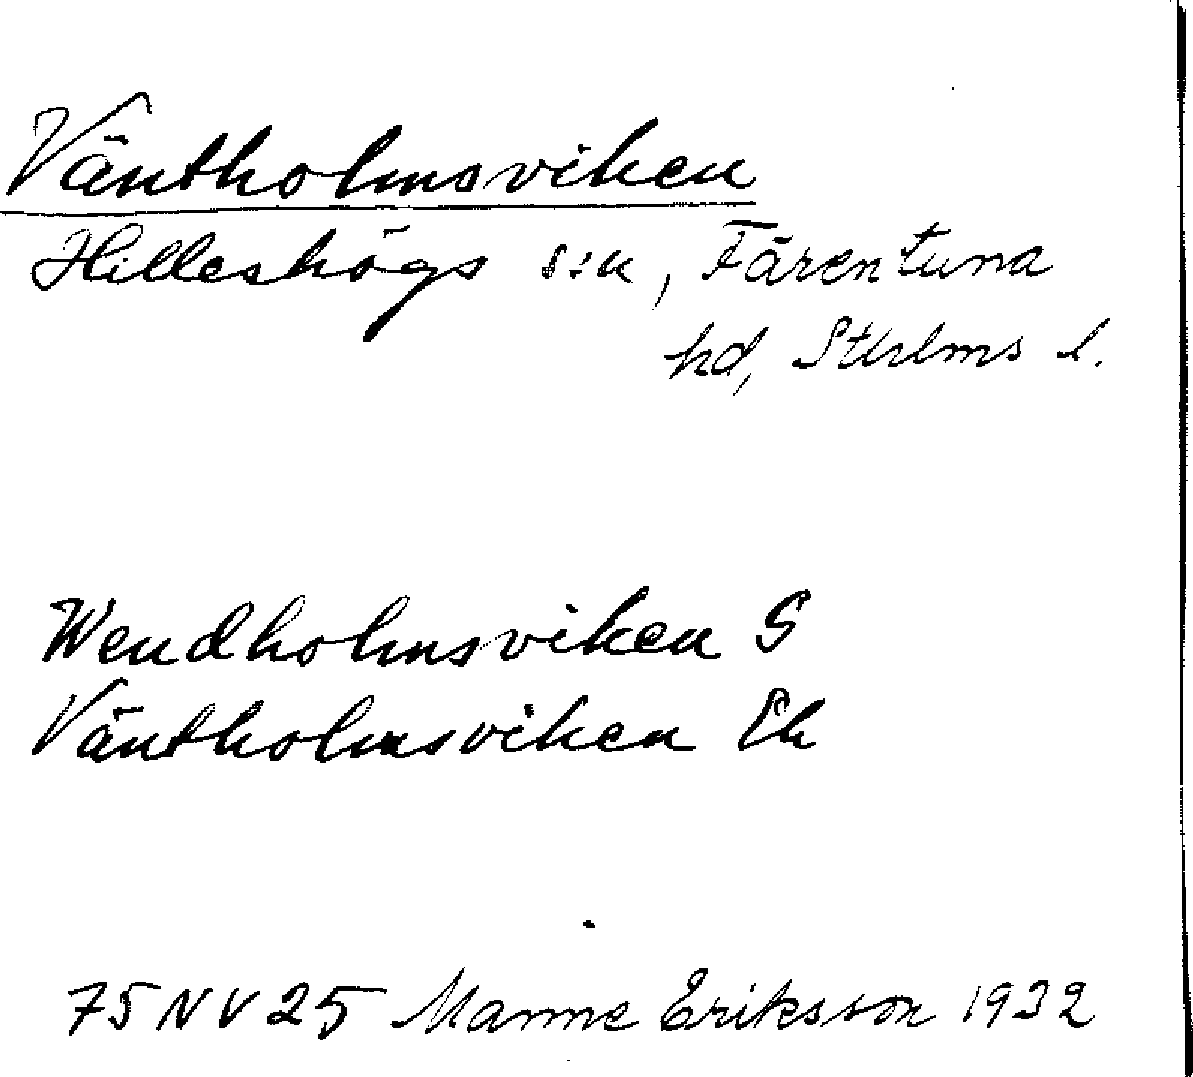 Väntholmsviken
Hilleshögs s:n, Färentuna
hd, Sthlms l.
Wendholmsviken G
Väntholmsviken Ek
75NV25 Manne Eriksson 1932